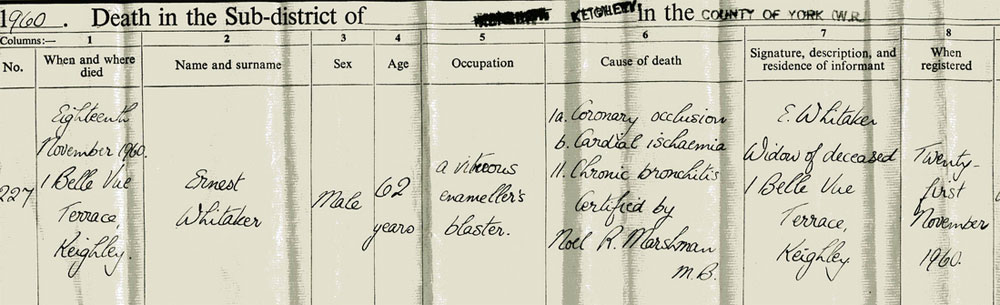 1960. Death in the Sub-district of KEIGHLEY in the COUNTY OF YORK (W.R.)
Columns:— 1 2 3 4 5 6 7 8
No. When and where died Name and surname Sex Age Occupation Cause of death Signature, description, and residence of informant When registered
227
Eighteenth
November 1960.
1 Belle Vue
Terrace,
Keighley.
Ernest
Whitaker
Male
62
years
a vitreous
enameller's
blaster.
1a. Coronary occlusion
b. Cardial ischaemia
11. Chronic bronchitis
Certified by
Noel R. Marshman
M.B.
E. Whitaker
Widow of deceased
1 Belle Vue
Terrace,
Keighley
Twenty-
first
November
1960.